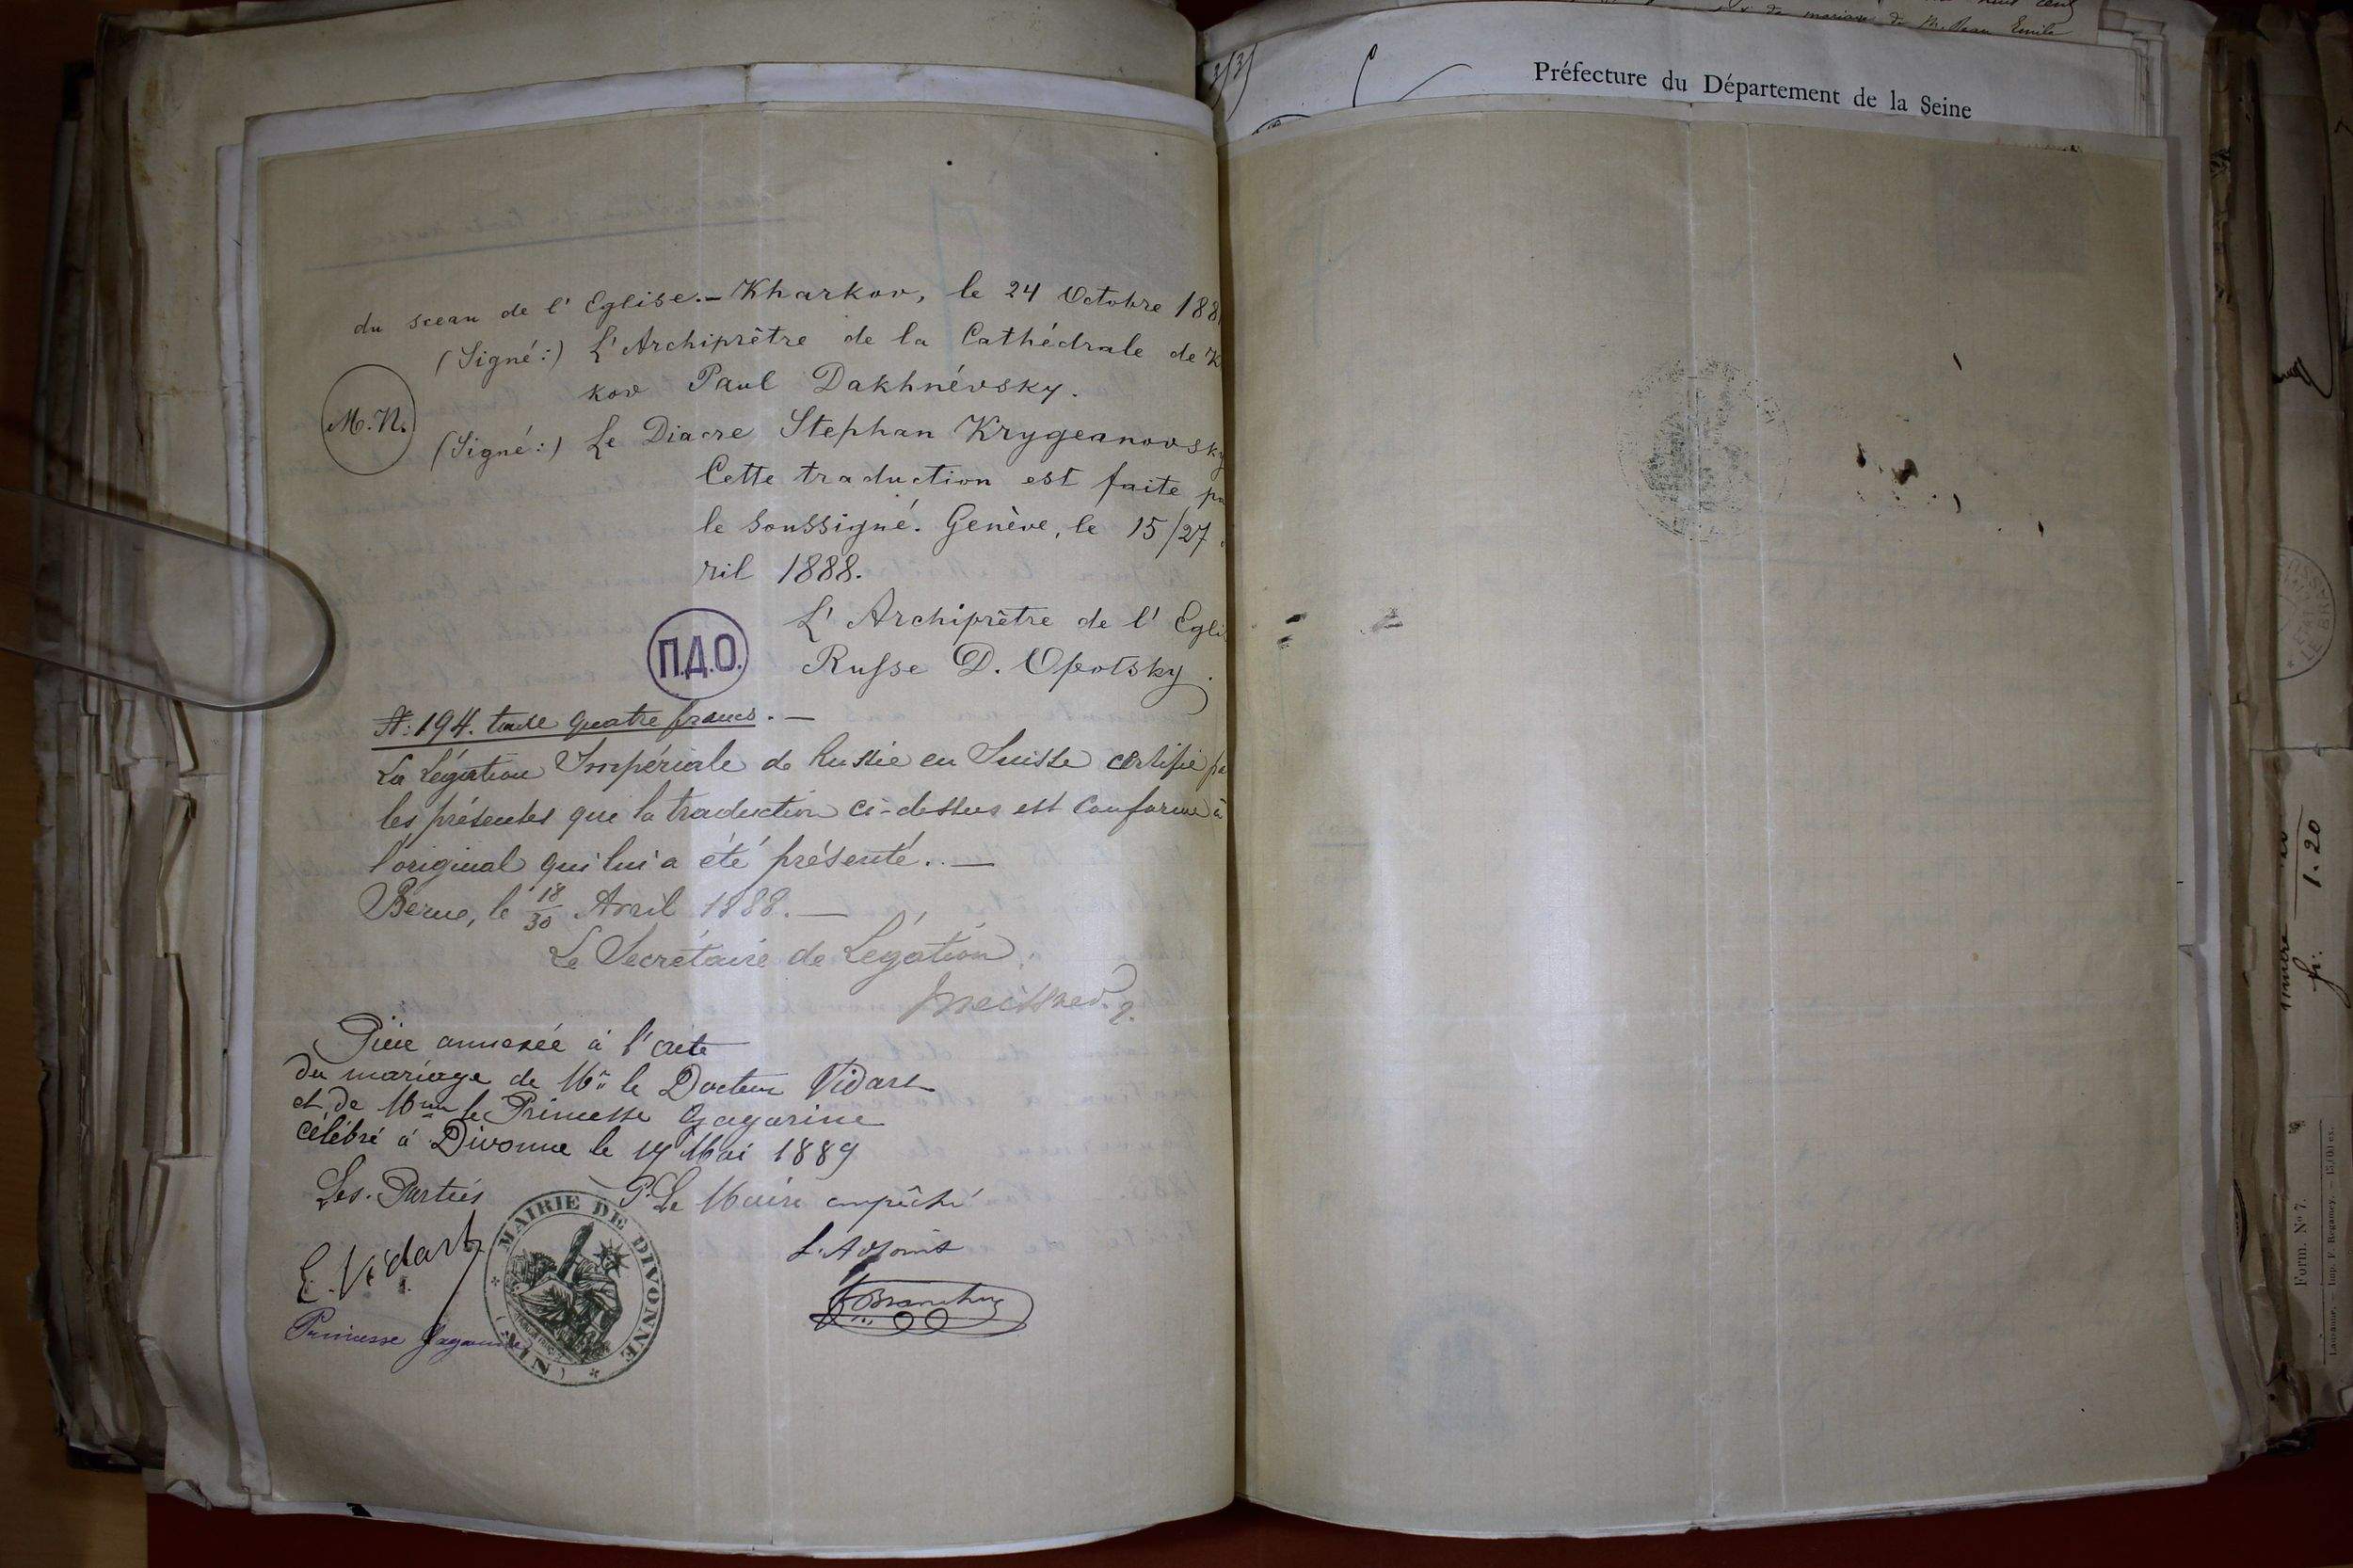 du sceau de l'Eglise.- Kharkov, le 24 Octobre 188
(Signé:) L'Archiprêtre de la Cathédrale de K
kov Paul Dakhnévsky.
M.N.
(Signé:) Le Diacre Stephan Krygeanovsky
Cette traduction est faite pa
le soussigné. Genève, le 15/27
ril 1888.
L'Archiprêtre de l'Egli
Russe D. Opotsky.
П.Д.О.
N: 194. taxe quatre francs. —
La Légation Impériale de Russie en Suisse certifie pa
les présentes que la traduction ci-dessus est conforme à
l'original qui lui a été présenté. —
Berne, le 18/30 Avril 1888. —
Le Secrétaire de Légation,
Pièce annexée à l'acte
du mariage de Mr le Docteur Vidart
et de Mme la Princesse Gagarine
célébré à Divonne le 19 Mai 1889
Les Parties
P. Le Maire empêché
L'Adjoint
E. Vidart
Princesse Gagarine
MAIRIE DE DIVONNE
(AIN)
de mariage de M. Emile
Préfecture du Département de la Seine
fr. 1.20
Form. No 7.